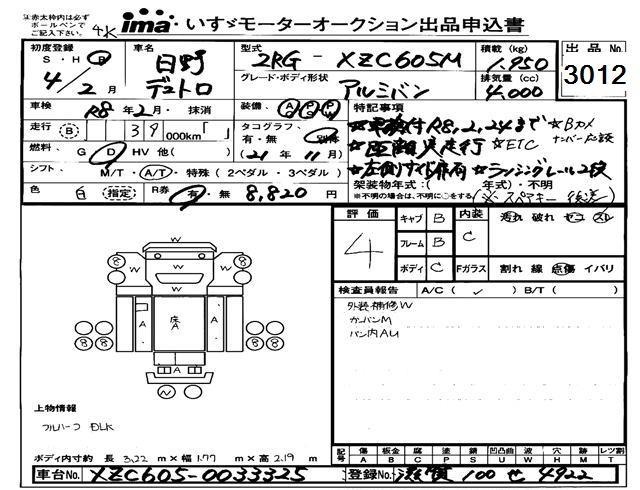 注)赤太枠内は必ず
ボールペンで
ご記入下さい。
4K
ima いすゞモーターオークション出品申込書
初度登録
S・H・R
4/2月
車名
日野
デュトロ
型式
2RG - XZC605M
グレード・ボディ形状
アルミバン
積載(kg)
1,950
排気量(cc)
4,000
出品No.
3012
車検 R8年2月・抹消
装備
走行 (B) 39,000km「 」
タコグラフ
有・無・
(21年11月)
燃料 G D HV 他( )
シフト M/T・A/T・特殊(2ペダル・3ペダル)
色 白 (指定) R券 有・無 8,820円
特記事項
★車検付R8,2,24まで ☆Bカメ
☆ETC
★ラッシングレール2段
架装物年式:( 年式)・不明
※不明の場合は、不明に○をする
評価
4
キャブ B
フレーム B
ボディ C
内装
C
汚れ 破れ セコ スレ
Fガラス 割れ 線 点傷 イバリ
検査員報告 A/C( ✓ ) B/T( )
外装補修W
カーバンM
バン内AU
W
W
W W
A
床
A
A
8 8 8 8
N
上物情報
フルハーフ DLK
ボディ内寸約 長 3.22 m×幅 1.77 m×高 2.19 m
記号
傷 板金 腐 塗 錆 凹凸曲 波 穴 跡 レツ割
A B C P S U W H M T
車台No. XZC605-0033325
登録No. 滋賀 100 せ 4922